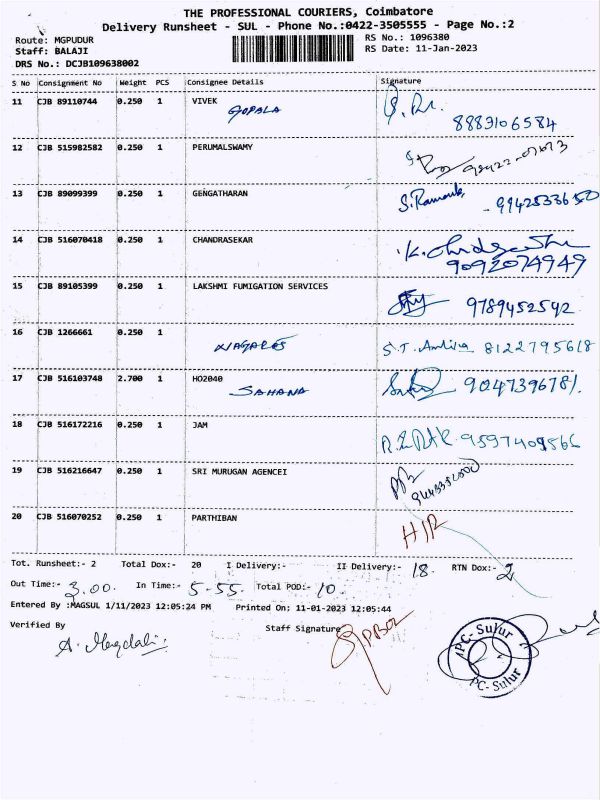 THE PROFESSIONAL COURIERS, Coimbatore
Delivery Runsheet - SUL - Phone No.:0422-3505555 - Page No.:2
Route: MGPUDUR
RS No.: 1096380
Staff: BALAJI
RS Date: 11-Jan-2023
DRS No.: DCJB109638002
S No Consignment No Weight PCS Consignee Details Signature
11 CJB 89110744 0.250 1 VIVEK
GOPALA
8883106584
12 CJB 515982582 0.250 1 PERUMALSWAMY
13 CJB 89099399 0.250 1 GENGATHARAN
9942533650
14 CJB 516070418 0.250 1 CHANDRASEKAR
9092074949
15 CJB 89105399 0.250 1 LAKSHMI FUMIGATION SERVICES
9789452542
16 CJB 1266661 0.250 1
8122795618
17 CJB 516103748 2.700 1 HO2040
SAHANA
18 CJB 516172216 0.250 1 JAM
9597409566
19 CJB 516216647 0.250 1 SRI MURUGAN AGENCEI
20 CJB 516070252 0.250 1 PARTHIBAN
Tot. Runsheet:- 2 Total Dox:- 20 I Delivery:- II Delivery:- 18. RTN Dox:- 2
Out Time:- 3.00. In Time:- 5-55. Total POD:- 10.
Entered By :MAGSUL 1/11/2023 12:05:24 PM Printed On: 11-01-2023 12:05:44
Verified By Staff Signature
PC-Sulur
PC-Sulur